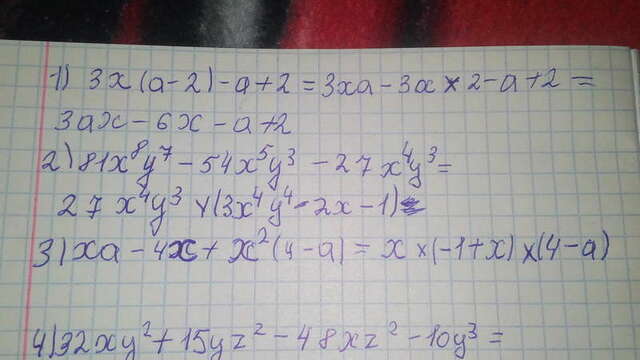 1) 3x(a-2)-a+2=3xa-3x×2-a+2=
3ax-6x-a+2
2) 81x⁸y⁷-54x⁵y³-27x⁴y³=
27x⁴y³×(3x⁴y⁴-2x-1)
3) xa-4x+x²(4-a)=x×(-1+x)×(4-a)
4) 32xy²+15yz²-48xz²-10y³=